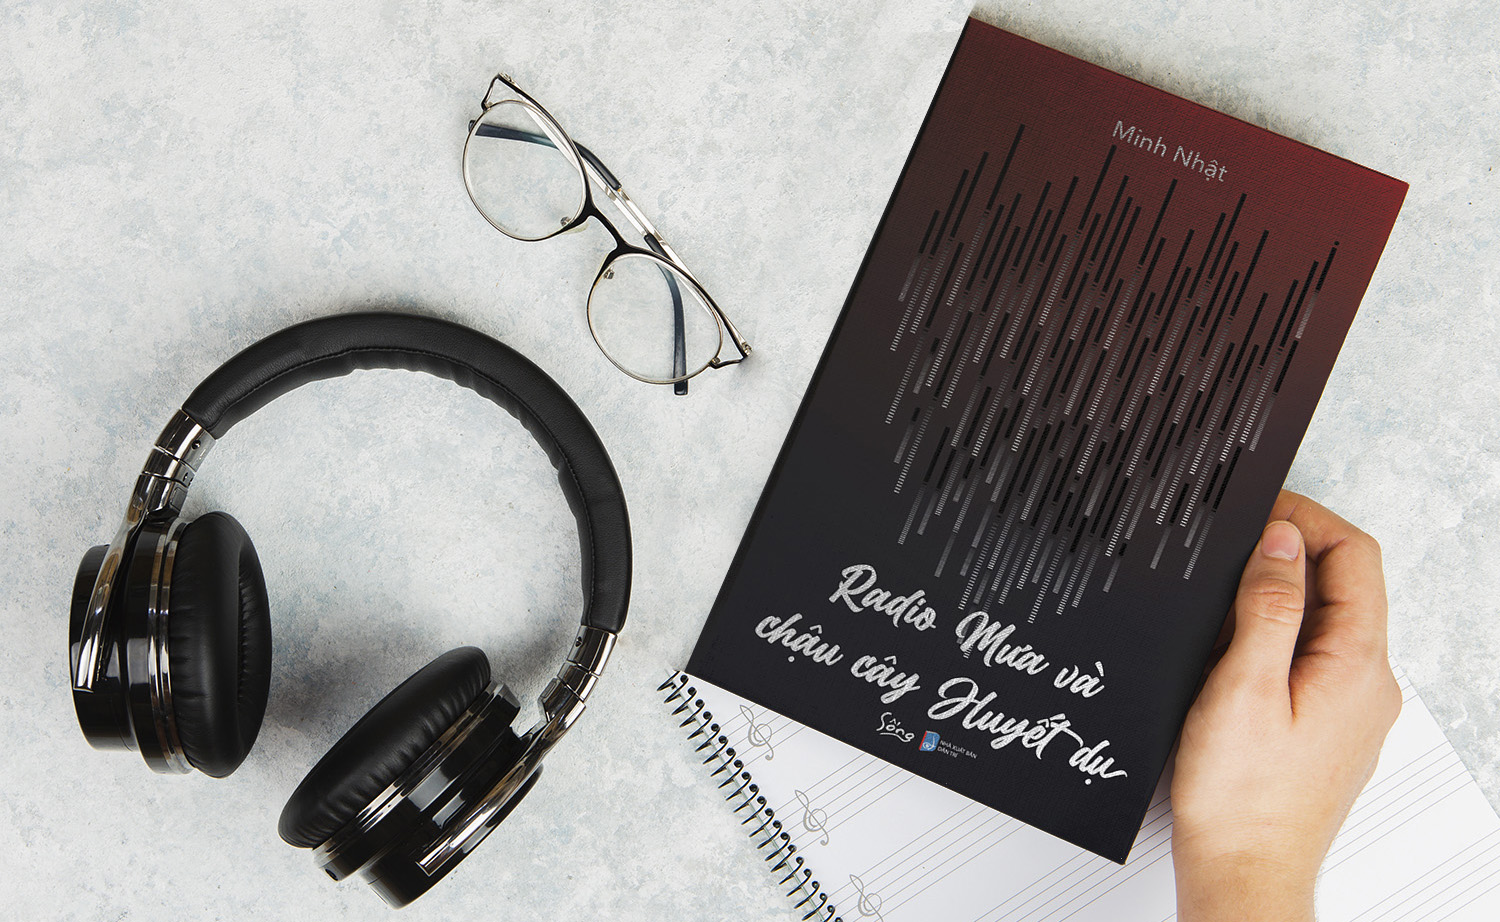 Minh Nhật
Radio Mưa và
chậu cây Huyết dụ
Sống
NHÀ XUẤT BẢN
DÂN TRÍ